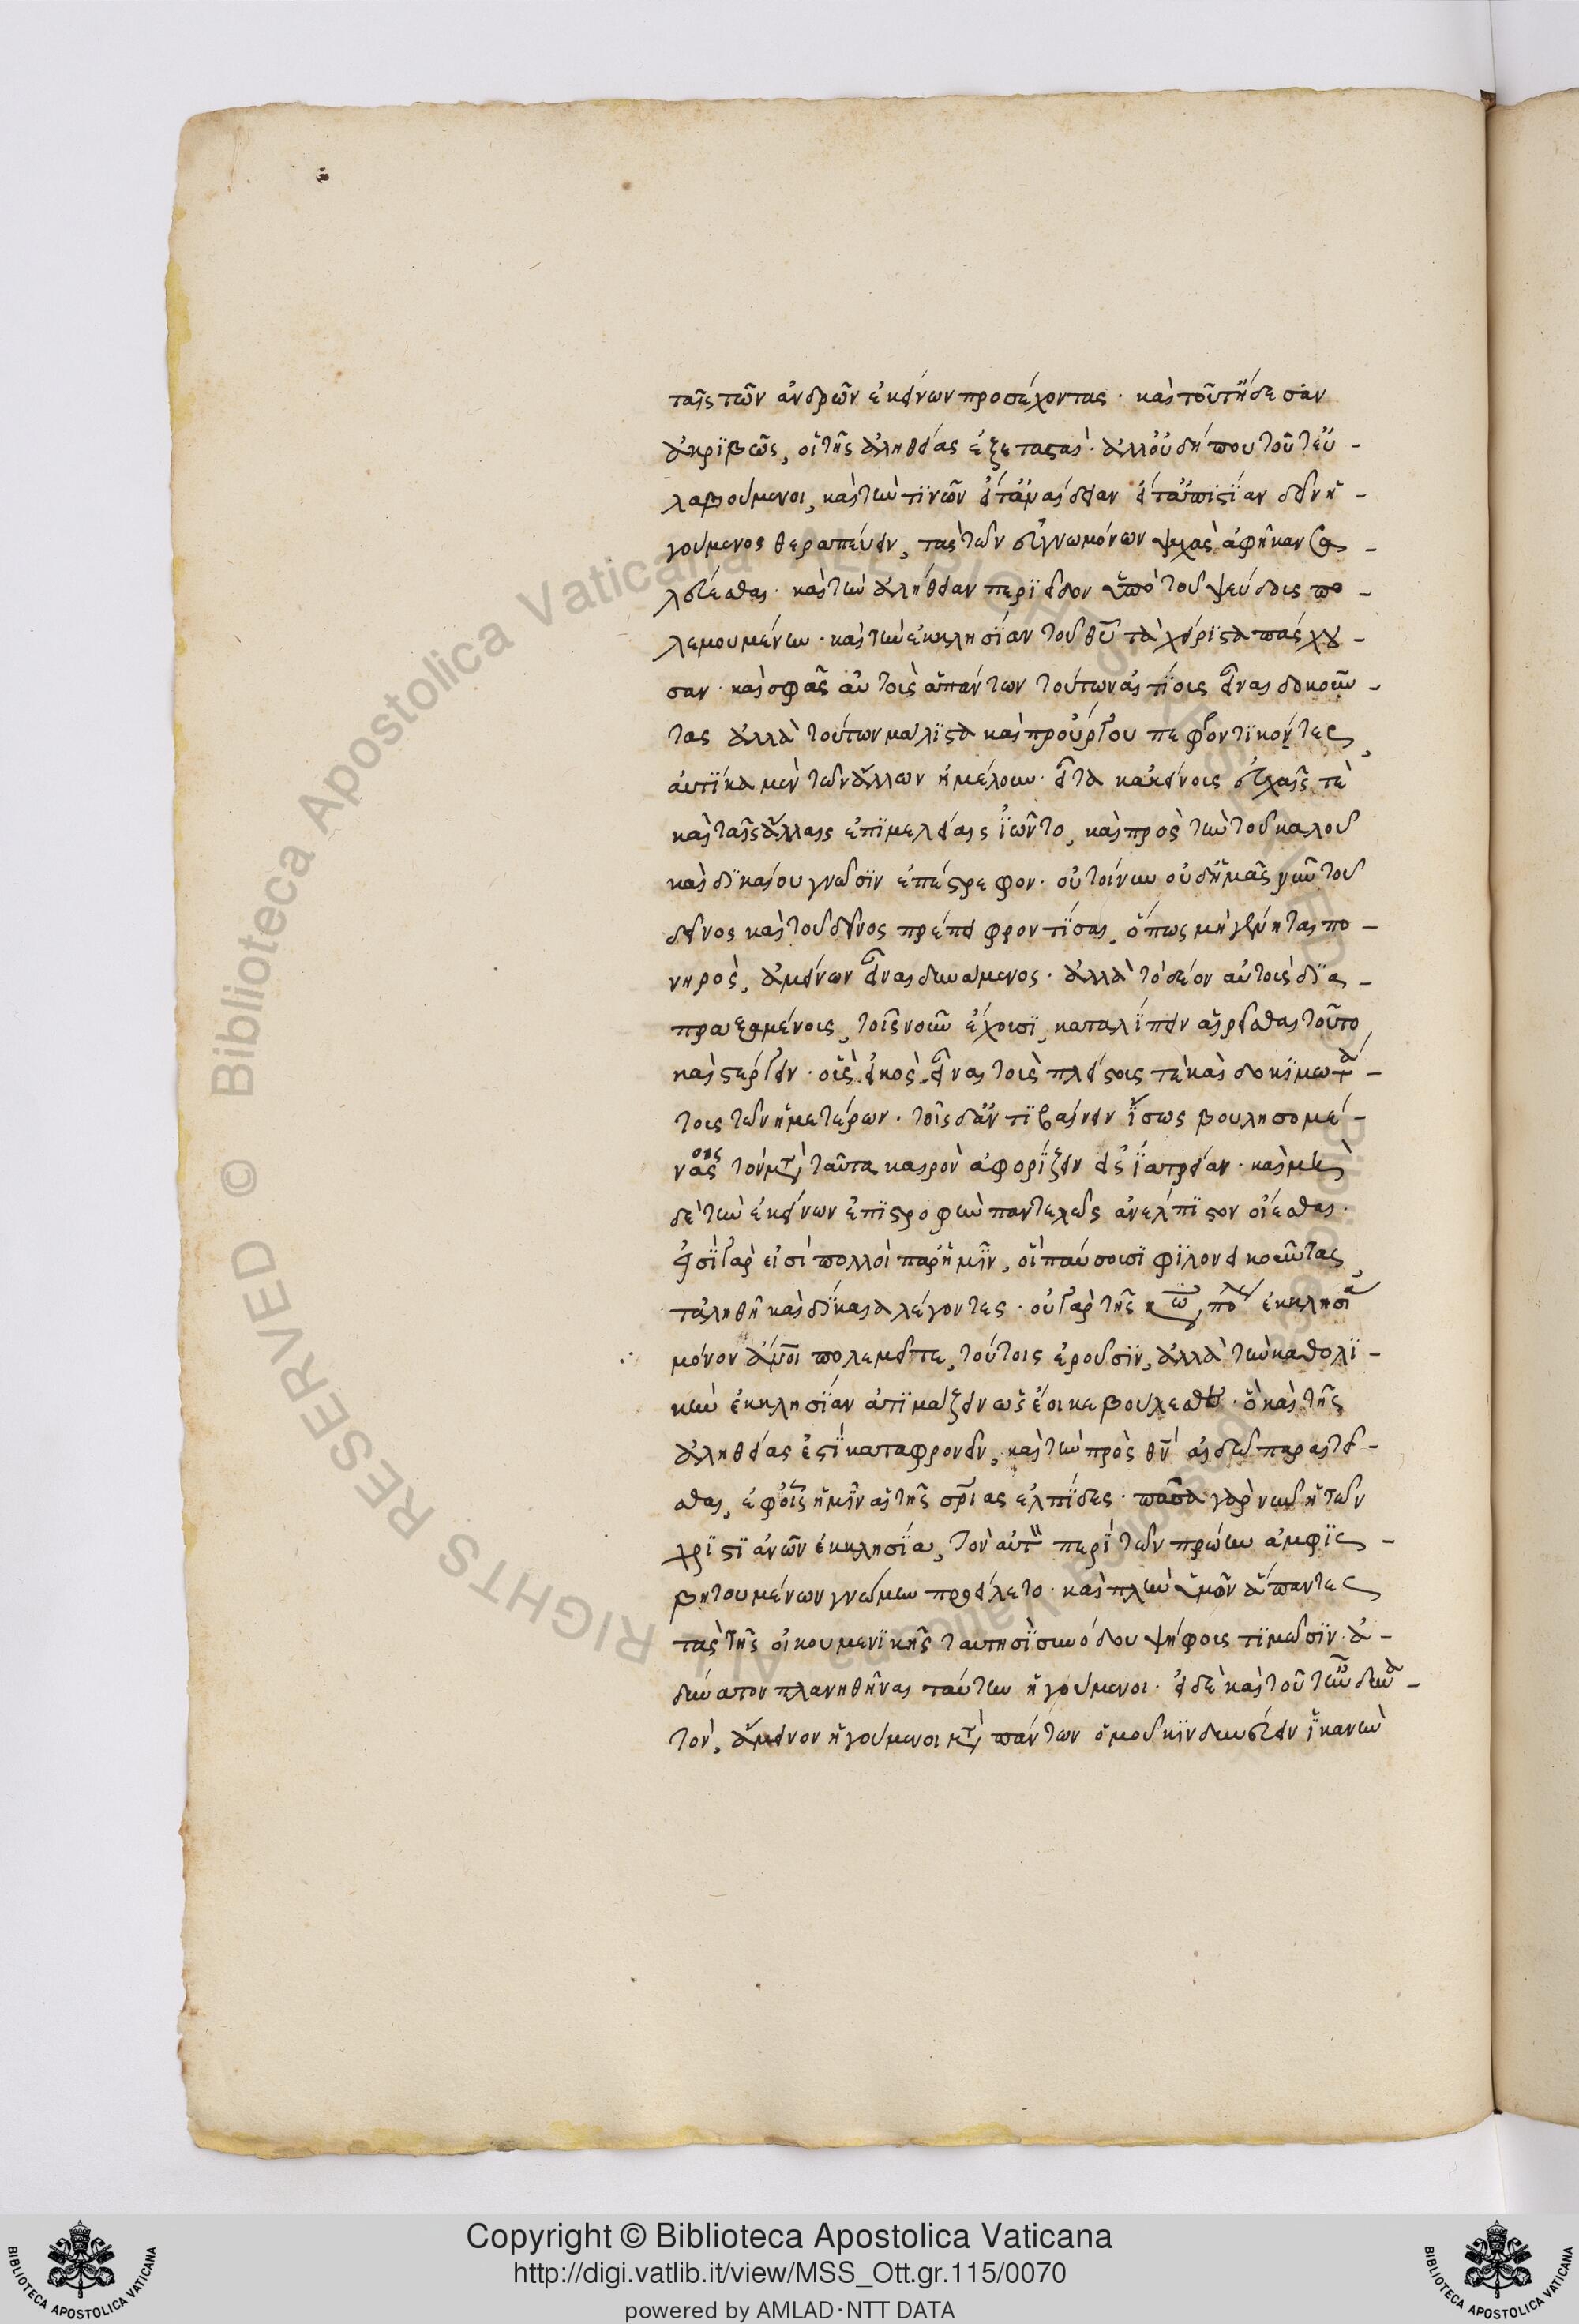 ταῖς τῶν ἀνδρῶν ἐκείνων προσέχοντας· καὶ τοῦτ' ᾔδεσαν
ἀκριβῶς, οἱ τῆς ἀληθείας ἐξετασταί· ἀλλ' οὐ δήπου τοῦτ' εὐ-
λαβούμενοι, καὶ τὴν τινῶν εἴτ' ἄνοιαν εἴτ' ἀπιστίαν δεῖν ἡ-
γούμενος θεραπεύειν, τὰς τῶν εὐγνωμόνων ψυχὰς ἀφῆκαν σα-
λεύεσθαι· καὶ τὴν ἀλήθειαν περιεῖδον ὑπὸ τοῦ ψεύδους πο-
λεμουμένην· καὶ τὴν ἐκκλησίαν τοῦ θῦ τὰ χείριστα πάσχου-
σαν· καὶ σφᾶς αὐτοὺς ἁπάντων τούτων αἰτίους εἶναι δοκοῦν-
τας ἀλλὰ τούτων μάλιστα καὶ προὔργου πεφροντικότες,
αὐτίκα μὲν τῶν ἄλλων ἠμέλουν· εἶτα κἀκείνους εὐχαῖς τὲ
καὶ ταῖς ἄλλαις ἐπιμελείαις ἰῶντο, καὶ πρὸς τὴν τοῦ καλοῦ
καὶ δικαίου γνῶσιν ἐπέστρεφον· οὐ τοίνυν οὐδ' ἡμᾶς νῦν τοῦ
δεῖνος καὶ τοῦ δεῖνος πρέπει φροντίσαι, ὅπως μὴ γένηται πο-
νηρὸς, ἀμείνων εἶναι δυνάμενος· ἀλλὰ τὸ δέον αὐτοὺς δια-
πραξαμένους, τοῖς νοῦν ἔχουσι, καταλιπεῖν αἱρεῖσθαι τοῦτο
καὶ στέργειν· οὓς εἰκὸς εἶναι τοὺς πλείστους τὲ καὶ δοκιμωτά-
τους τῶν ἡμετέρων· τοῖς δ' ἀντιβαίνειν ἴσως βουλησομέ-
νοις τὸν μετὰ ταῦτα καιρὸν ἀφορίζειν εἰς ἰατρείαν· καὶ μὴ
δὲ τὴν ἐκείνων ἐπιστροφὴν παντελῶς ἀνέλπιστον οἴεσθαι·
εἰσὶ γάρ εἰσὶ πολλοὶ παρ' ἡμῖν, οἳ παύσουσι φιλονεικοῦντας,
τἀληθῆ καὶ δίκαια λέγοντες· οὐ γὰρ τῆς ἐκκλησία
μόνον πολεμεῖτε, τούτοις ἐροῦσιν, ἀλλὰ τὴν καθολι-
κὴν ἐκκλησίαν ἀτιμάζειν ὡς ἔοικε βούλεσθε· ὃ καὶ τῆς
ἀληθείας ἐστὶ καταφρονεῖν, καὶ τὴν πρὸς θν αἰδῶ παραιτεῖ-
σθαι, ἐφ' οἷς ἡμῖν αἱ τῆς σρίας ἐλπίδες· πᾶσα γὰρ νῦν ἡ τῶν
χριστιανῶν ἐκκλησία, τὸν αὐτ περὶ τῶν πρώην ἀμφισ-
βητουμένων γνώμην προείλετο· καὶ πλὴν ὑμῶν ἅπαντες
τὰς τῆς οἰκουμενικῆς ταυτησὶ συνόδου ψήφους τιμῶσιν· ἀ-
δύνατον πλανηθῆναι ταύτην ἡγούμενοι· εἰ δὲ καὶ τοῦτ' ἦν δυνα-
τὸν, ἄμεινον ἡγούμενοι μετὰ πάντων ὁμοῦ κινδυνεύειν ἱκανὴν
Copyright © Biblioteca Apostolica Vaticana
http://digi.vatlib.it/view/MSS_Ott.gr.115/0070
powered by AMLAD·NTT DATA